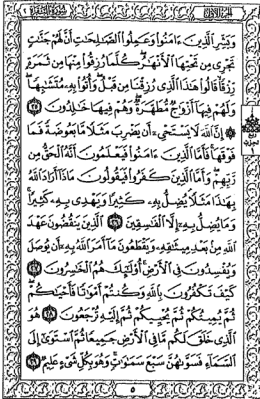 الجزء الأول سورة البقرة ٢
وَبَشِّرِ ٱلَّذِينَ ءَامَنُوا۟ وَعَمِلُوا۟ ٱلصَّٰلِحَٰتِ أَنَّ لَهُمْ جَنَّٰتٍ
تَجْرِى مِن تَحْتِهَا ٱلْأَنْهَٰرُ كُلَّمَا رُزِقُوا۟ مِنْهَا مِن ثَمَرَةٍ
رِّزْقًا قَالُوا۟ هَٰذَا ٱلَّذِى رُزِقْنَا مِن قَبْلُ وَأُتُوا۟ بِهِۦ مُتَشَٰبِهًا
وَلَهُمْ فِيهَآ أَزْوَٰجٌ مُّطَهَّرَةٌ وَهُمْ فِيهَا خَٰلِدُونَ ٢٥
۞ إِنَّ ٱللَّهَ لَا يَسْتَحْىِۦٓ أَن يَضْرِبَ مَثَلًا مَّا بَعُوضَةً فَمَا
فَوْقَهَا فَأَمَّا ٱلَّذِينَ ءَامَنُوا۟ فَيَعْلَمُونَ أَنَّهُ ٱلْحَقُّ مِن
رَّبِّهِمْ وَأَمَّا ٱلَّذِينَ كَفَرُوا۟ فَيَقُولُونَ مَاذَآ أَرَادَ ٱللَّهُ
بِهَٰذَا مَثَلًا يُضِلُّ بِهِۦ كَثِيرًا وَيَهْدِى بِهِۦ كَثِيرًا
وَمَا يُضِلُّ بِهِۦٓ إِلَّا ٱلْفَٰسِقِينَ ٢٦ ٱلَّذِينَ يَنقُضُونَ عَهْدَ
ٱللَّهِ مِنۢ بَعْدِ مِيثَٰقِهِۦ وَيَقْطَعُونَ مَآ أَمَرَ ٱللَّهُ بِهِۦٓ أَن يُوصَلَ
وَيُفْسِدُونَ فِى ٱلْأَرْضِ أُو۟لَٰٓئِكَ هُمُ ٱلْخَٰسِرُونَ ٢٧
كَيْفَ تَكْفُرُونَ بِٱللَّهِ وَكُنتُمْ أَمْوَٰتًا فَأَحْيَٰكُمْ
ثُمَّ يُمِيتُكُمْ ثُمَّ يُحْيِيكُمْ ثُمَّ إِلَيْهِ تُرْجَعُونَ ٢٨ هُوَ
ٱلَّذِى خَلَقَ لَكُم مَّا فِى ٱلْأَرْضِ جَمِيعًا ثُمَّ ٱسْتَوَىٰٓ إِلَى
ٱلسَّمَآءِ فَسَوَّىٰهُنَّ سَبْعَ سَمَٰوَٰتٍ وَهُوَ بِكُلِّ شَىْءٍ عَلِيمٌ ٢٩
٥